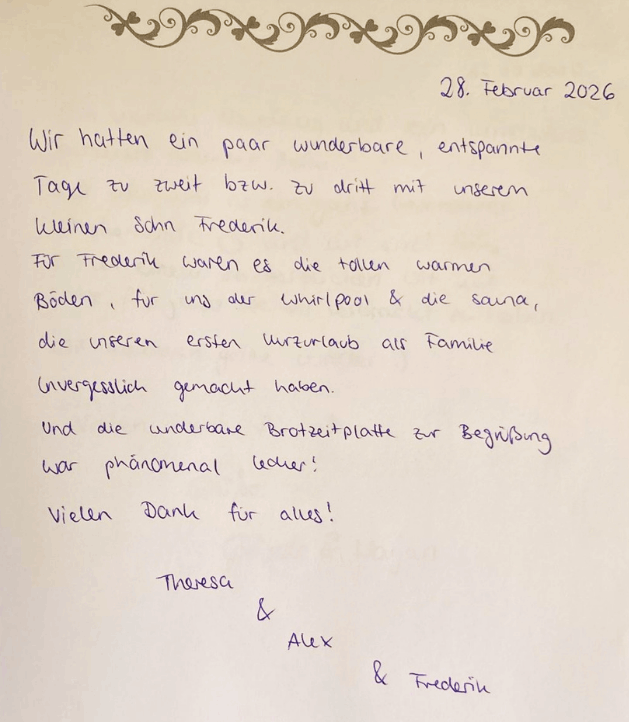 28. Februar 2026
Wir hatten ein paar wunderbare, entspannte
Tage zu zweit bzw. zu dritt mit unserem
kleinen Sohn Frederik.
Für Frederik waren es die tollen warmen
Böden, für uns der Whirlpool & die Sauna,
die unseren ersten Kurzurlaub als Familie
unvergesslich gemacht haben.
Und die wunderbare Brotzeitplatte zur Begrüßung
war phänomenal lecker!
Vielen Dank für alles!
Theresa
&
Alex
& Frederik